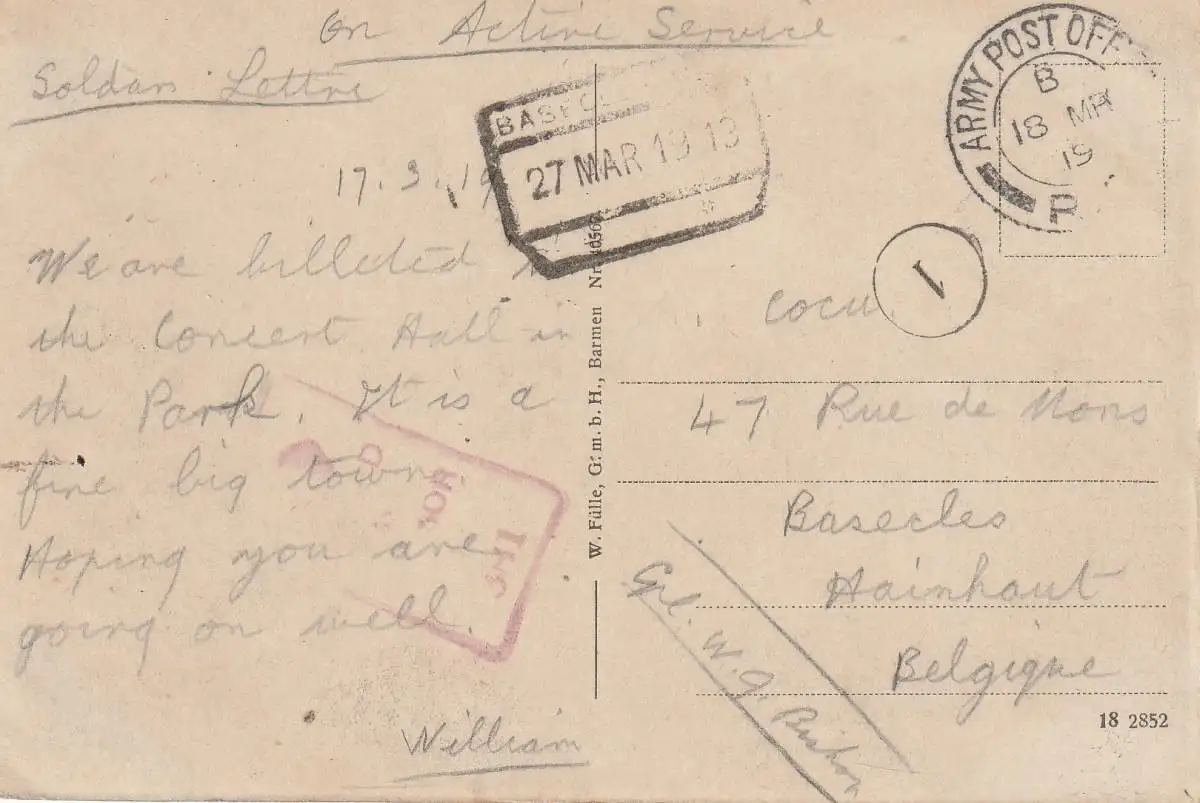 On Active Service
Soldan Lettre
17.3.19
We are billeted
the Concert Hall in
the Park. It is a
fine big town.
Hoping you are
going on well.
William
27 MAR 19 13
ARMY POST OFF
B
18 MR
19
P
1
W. Fülle, G. m. b. H., Barmen Nr.
Cocu
47 Rue de Mons
Basecles
Hainhaut
Belgique
Cpl. W. J.
18 2852